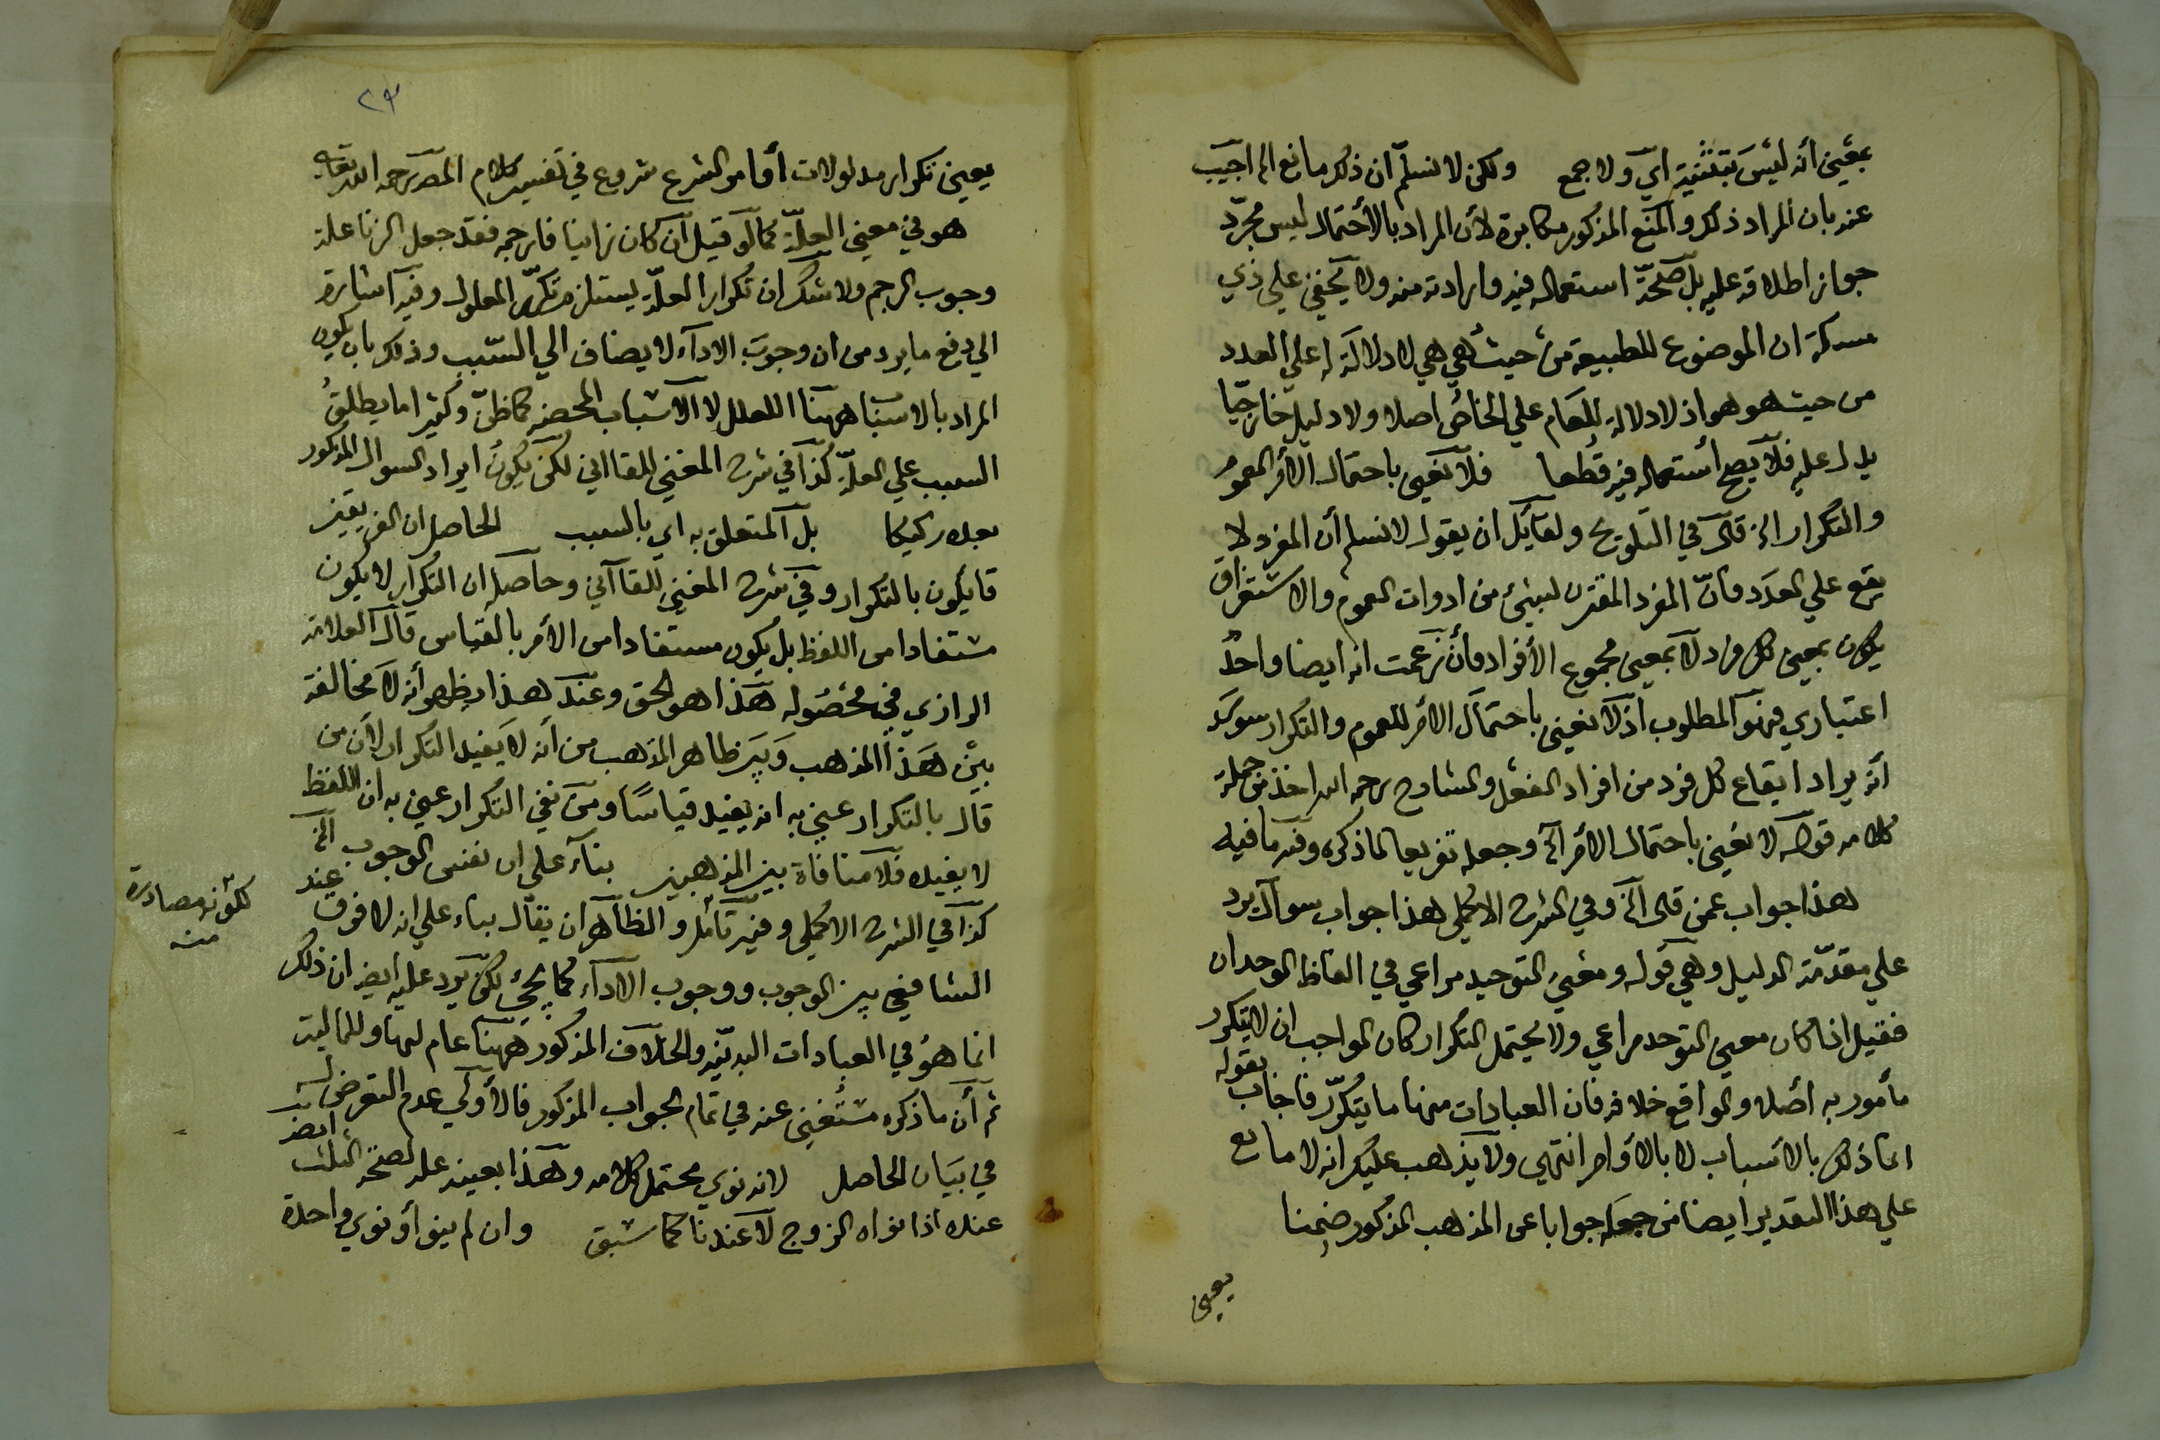 بمعنى أنه ليس بتثنية اي ولا جمع ولكن لا نسلم ان ذلك مانع الخ اجيب
عنه بان المراد ذلك والمنع المذكور مكابرة لأن المراد بالأحتمال ليس مجرّد
جواز اطلاقه عليه بل صحّة استعماله فيه وارادته منه ولا يخفى على ذي
مسكة ان الموضوع للطبيعة من حيث هي هي لا دلالة له على العدد
من حيث هو هو اذ لا دلالة للعام على الخاص اصلا ولا دليل خارجيّا
يدل عليه فلا يصح أستعماله فيه قطعا فلا نعنى باحتمال الأمر العموم
والتكرار الخ قال في التلويح ولقائل ان يقول لا نسلم أن المفرد لا
يقع على العدد فانّ المفرد المقترن لشئ من ادوات العموم والاستغراق
يكون بمعنى كل فرد لا بمعنى مجموع الأفراد فأن زعمت انه ايضا واحدٌ
اعتباري فهو المطلوب اذ لا نعنى باحتمال الأمر للعموم والتكرار سوى
أنه يراد ايقاع كل فرد من افراد الفعل والشارح رحمه الله اخذ من جملة
كلامه قوله لا نعنى باحتمال الأمر الخ وجعله تفريعا لما ذكره وفيه ما فيه
هذا جواب عمن قال الخ وفي الشرح الاكملى هذا جواب سوآل يرد
على مقدّمة الدليل وهي قوله ومعنى التوحيد مراعي في الفاظ الوحدان
فقيل اذا كان معنى التوحد مراعي ولا يحتمل التكرار كان الواجب ان لا يتكرر
مأمور به أصلا والواقع خلافه فان العبادات منها ما يتكرّر فأجاب بقوله
انما ذلك بالأسباب لا بالأوامر انتهى ولا يذهب عليك انه لا مانع
على هذا التقدير ايضا من جعله جوابا عن المذهب المذكور ضمنا
يعنى
٢٣
يعني تكرار مدلولات أوامر الشرع شروع في تفسير كلام المصـ رحمه الله تعالى
هو في معنى العلّة كما لو قيل أن كان زانيا فارجمه فقد جعل الزنا علة
وجوب الرجم ولا شك ان تكرار العلّة يستلزم تكرّر المعلول وفيه اشارة
الى دفع ما يرد من ان وجوب الادآء لا يضاف الي السّبب وذلك بان يكون
المراد بالاسباب ههنا العلل لا الاسباب المحضة كما ظنّ وكثيرا ما يطلقُ
السبب على العلّة كذا في شرح المغني للقاآني لكن يكون ايراد السوال المذكور
بعده ركيكا بل المتعلق به اي بالسبب الحاصل ان الفريقين
قايلون بالتكرار وفي شرح المغني للقاآني وحاصله ان التكرار لا يكون
مستفادا من اللفظ بل يكون مستفادا من الأمر بالقياس قال العلامة
الرازي في محصوله هذا هو الحق وعند هذا يظهر أنه لا مخالفة
بين هذا المذهب وبين ظاهر المذهب من أنه لا يفيد التكرار لأن من
قال بالتكرار عنى به انه يفيد قياسًا ومن نفى التكرار عنى به ان اللفظ
لا يفيده فلا منافاة بين المذهبين بناء على ان نفس الوجوب الخ
كذا في الشرح الاكملى وفيه تأمل والظاهر ان يقال بناء على انه لا فرق عند
الشافعي بين الوجوب ووجوب الادآء كما يجئ لكن يرد عليه ايضا ان ذلك
انما هو في العبادات البدنيّة والخلاف المذكور ههنا عام لها وللمالية
ثم أن ما ذكره مستغنى عنه في تمام الجواب المذكور فالأولى عدم التعرض له
في بيان الحاصل لانه نوى محتمل كلامه وهذا بعينه علة لصحّة الثلث ايضا
عنده اذا نواه الزوج لا عندنا كما سبق وان لم ينو أو نوى واحدة
لكونه مصادرة
منه